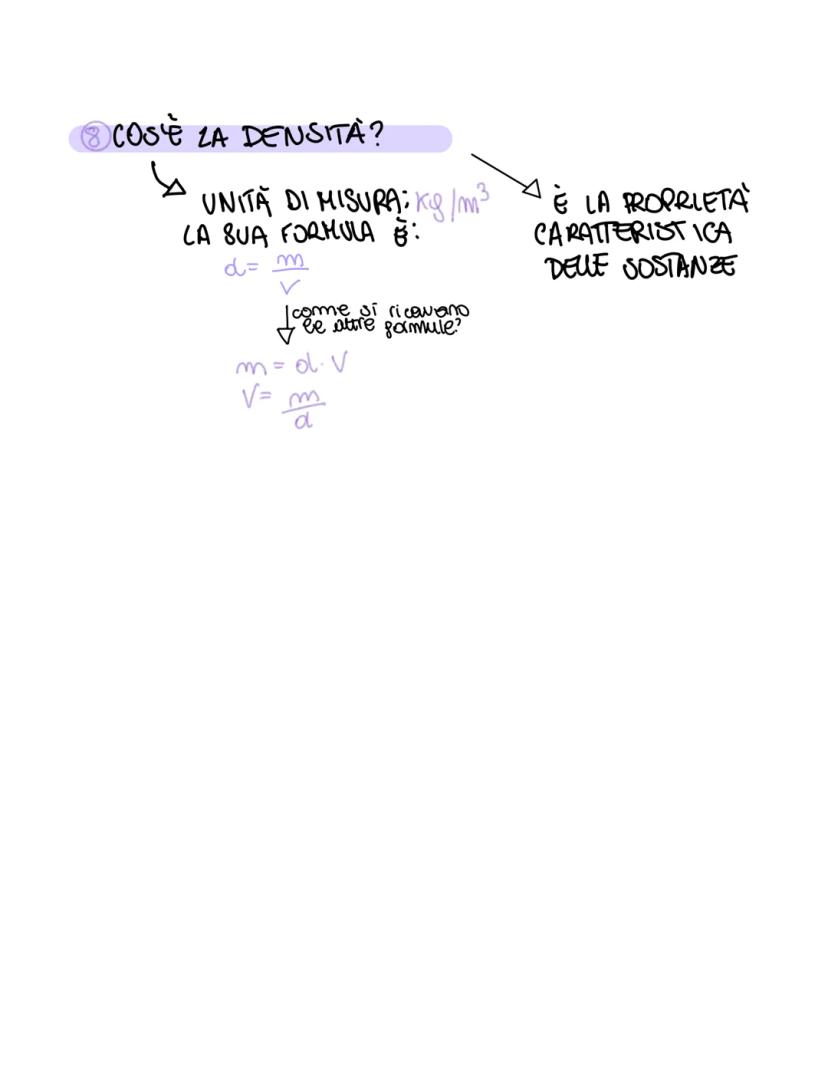 8 COS'È LA DENSITÀ?
UNITÀ DI MISURA: kg/m³
LA SUA FORMULA È:
d = m/V
come si ricavano
le altre formule?
m = d · V
V = m/d
È LA PROPRIETÀ
CARATTERISTICA
DELLE SOSTANZE